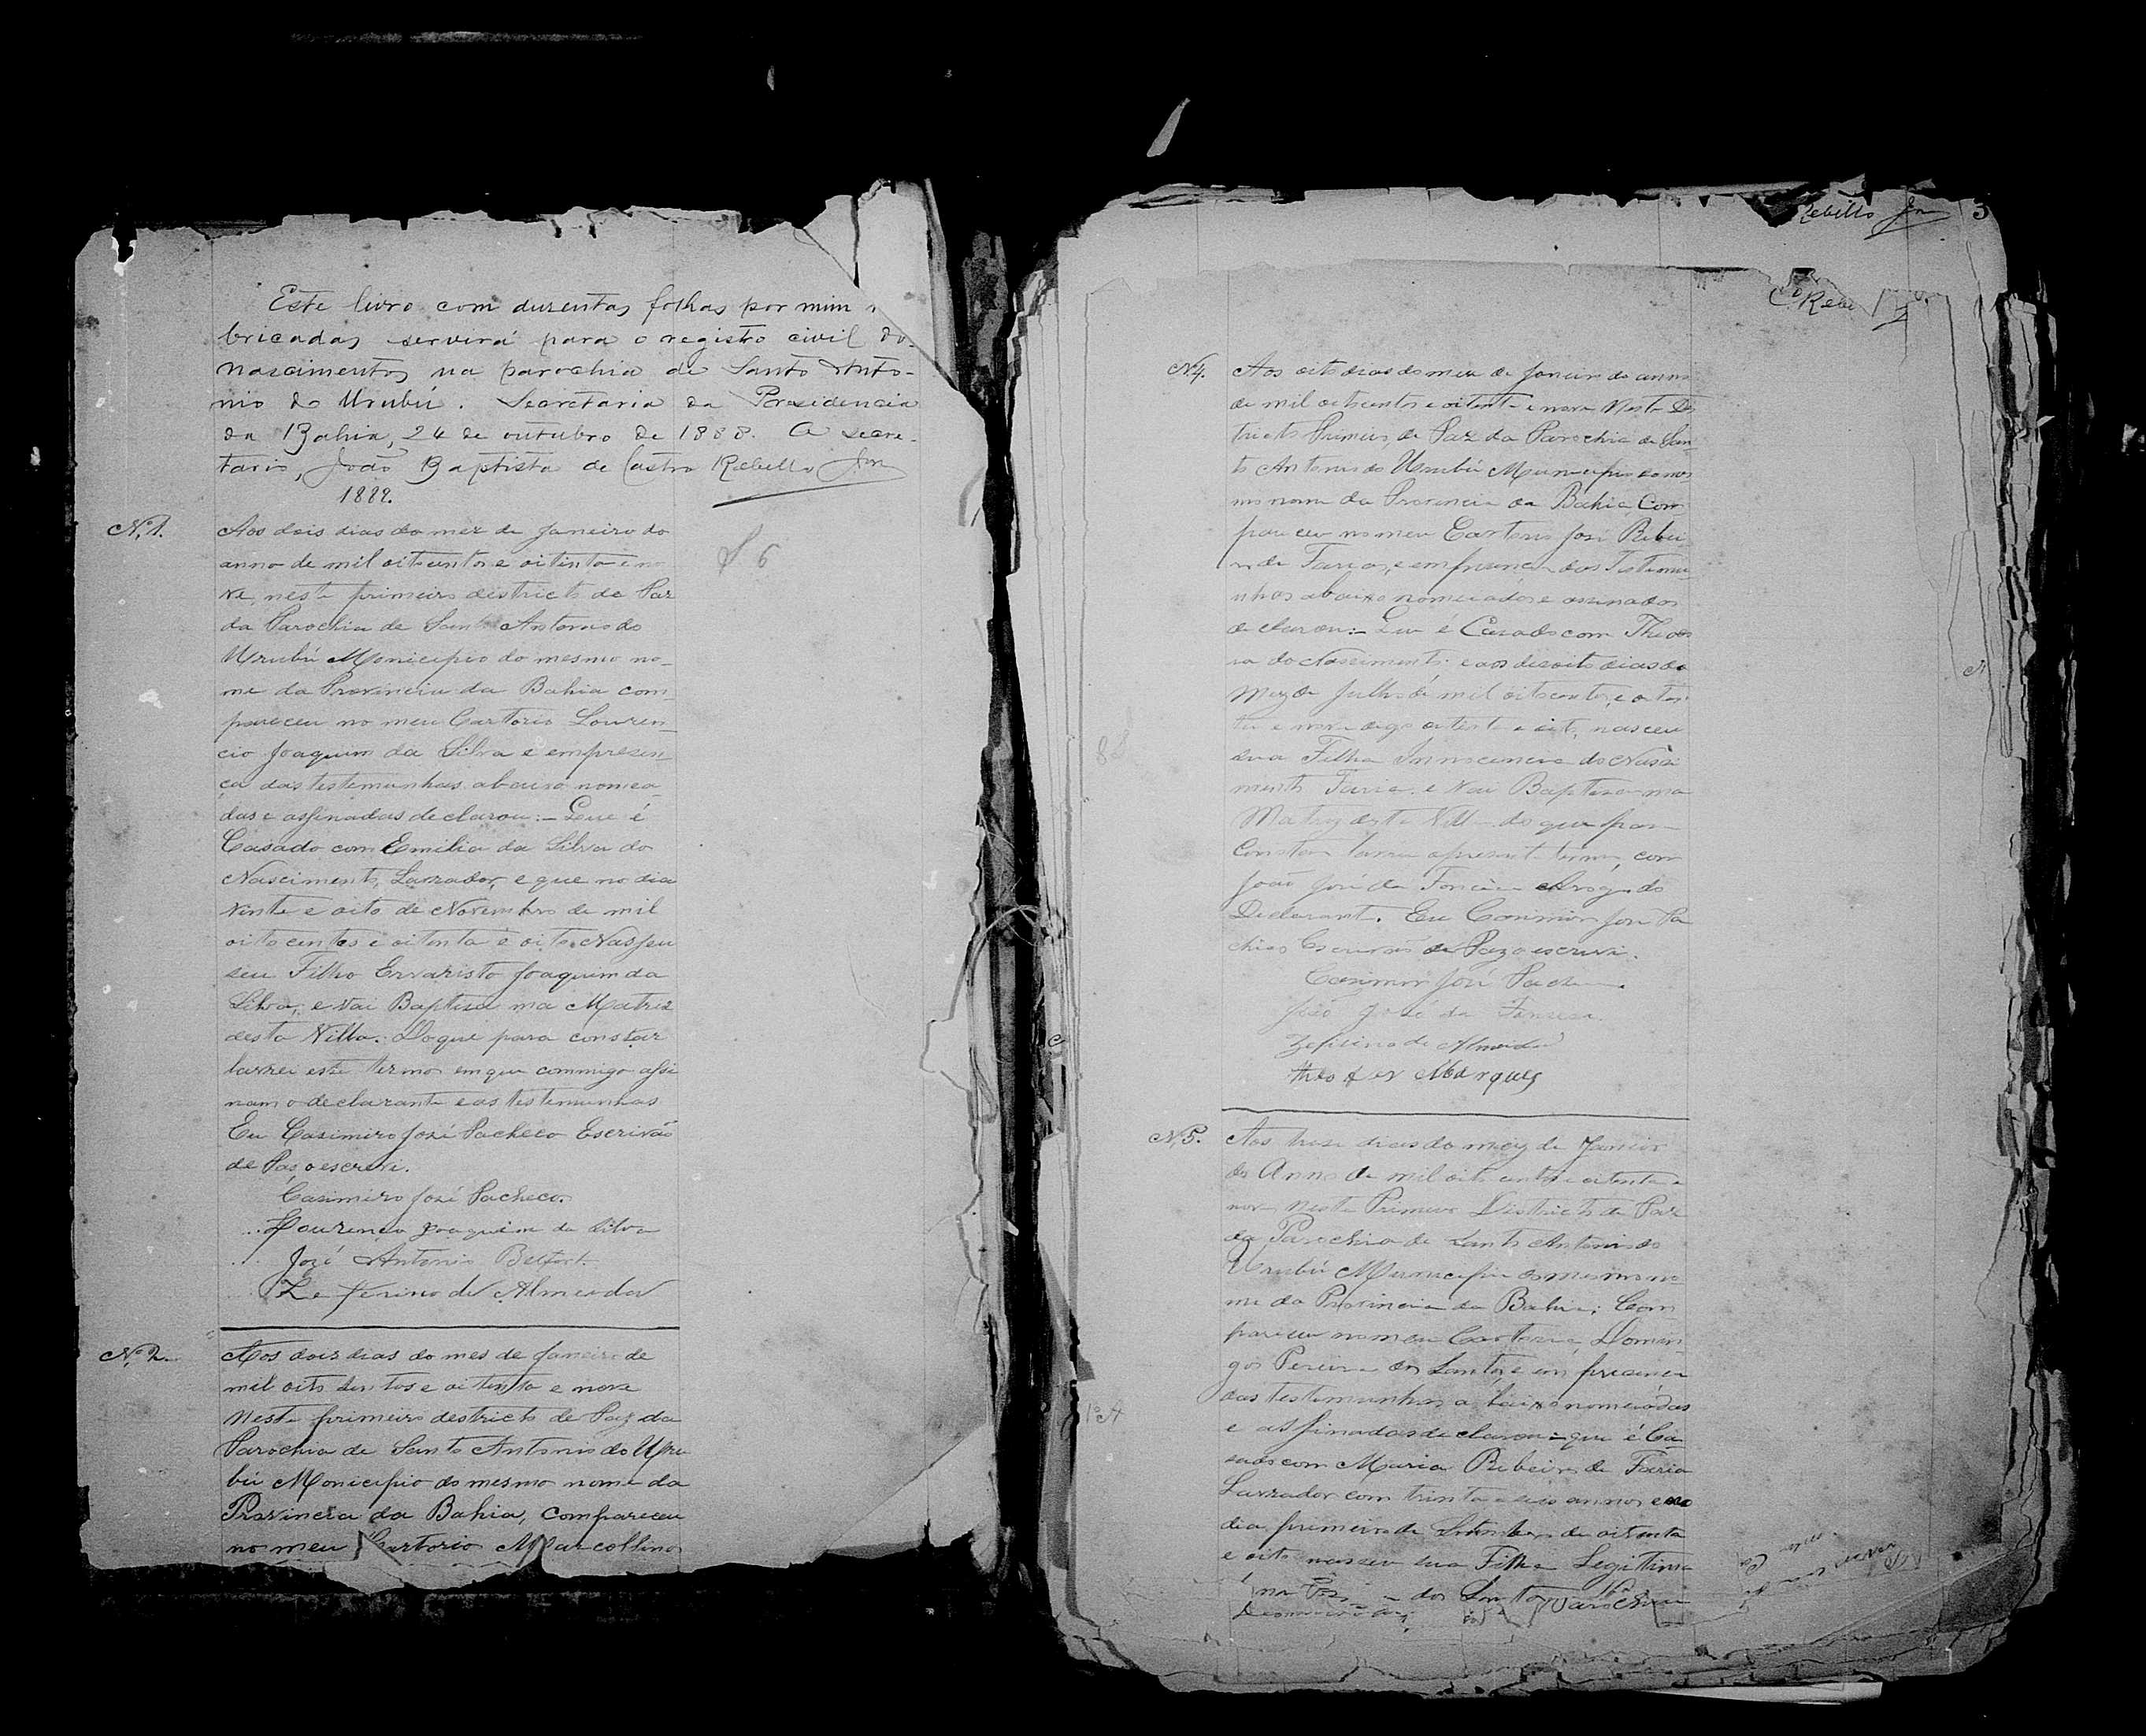 Este livro com duzentas folhas por mim
bricadas servirá para o registro civil do
nascimentos na parochia de Santo Anto-
nio do Urubú. Secretaria da Presidencia
da Bahia, 24 de outubro de 1888. O secre-
tario, João Baptista de Castro Rebello Jor
1889.
N.º 1.
Aos dois dias do mez de Janeiro do
anno de mil oitocentos e oitenta e no
ve, neste primeiro districto de Paz
da Parochia de Santo Antonio do
Urubú Monicipio do mesmo no-
me da Provincia da Bahia com-
pareceu no meu Cartorio Louren
cio Joaquim da Silva e empresen-
ça das testemunhas abaixo nomea-
das e assinadas declarou:- Que é
Casado com Emilia da Silva do
Nascimento, Lavrador, e que no dia
vinte e oito de Novembro de mil
oito centos e oitenta e oito Nasseu
seu Filho Ervaristo Joaquim da
Silva, e vai Baptisa na Matriz
desta Villa. Do que para constar
lavrei este termo em que commigo assi
nam o declarante e as testemunhas
Eu Casimiro José Pacheco Escrivão
de Paz o escrevi.
Casimiro José Pacheco.
Lourenço Joaquim da Silva
José Antonio Belfort.
Zeferino de Almeida
N.º 2.
Aos dois dias do mes de Janeiro de
mil oito sentos e oitenta e nove
Neste primeiro destricto de Paz da
Parochia de Santo Antonio do Uru
bú Monicipio do mesmo nome da
Provincia da Bahia, compareceu
no meu Cartorio Marcollino
Rebello Jor 3
C. Rebe
N. 4.
Aos oito dias do mez de Janeiro do anno
de mil oitocentos e oitenta e nove Neste Des
tricto Primeiro de Paz da Parochia de San-
to Antonio do Urubú Municipio do mes
mo nome da Provincia da Bahia, Com
pareceu no meu Cartorio José Ribei
ro de Faria, e em presença das Testemu
nhas abaixo nomeiados e assinados
declarou:- Que é Casado com Theodo
ra do Nascimento: e aos desoito dias do
Mez de Julho de mil oitocentos, e oiten
ta e nove digo oitenta e oito, nasceu
sua Filha Innocencia do Nasci
mento Faria. e Vai Baptisar na
Matriz desta Villa do que para
Constar lavrei apresente termo, com
João José da Fonseca Arogo do
Declarante. Eu Casimiro José Pa
checo Escrivão de Paz o escrevi.
Casimiro José Pacheco.
João José da Fonseca.
Zefirino de Almeida
Marques
N. 5.
Aos treze dias do mez de Janeiro
do Anno de mil oito centos e oitenta e
nove, Neste Primeiro Districto de Paz
da Parochia de Santo Antonio do
Urubú Municipio do mesmo no-
me da Provincia da Bahia; Com
pareceu no meu Cartorio, Domin-
gos Pereira dos Santos, e em presença
das testemunhas abaixo nomeiadas
e assinadas declarou - que é Ca-
sado com Maria Ribeiro de Faria
Lavrador com trinta e seis annos e no
dia primeiro de Setembro de oitenta
e oito nasceu sua Filha Legitima
dos Santos